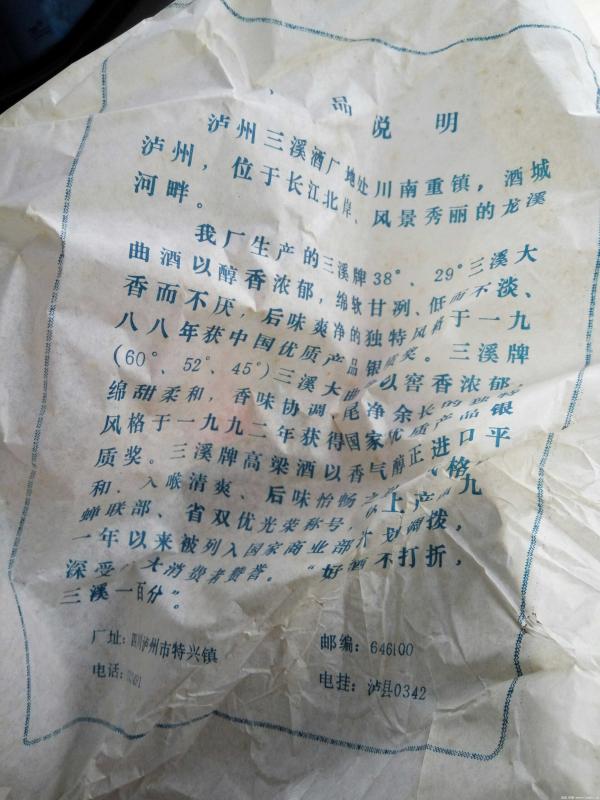 品说明
泸州三溪酒厂地处川南重镇，酒城
泸州，位于长江北岸、风景秀丽的龙溪
河畔。
我厂生产的三溪牌38°、29°三溪大
曲酒以醇香浓郁，绵软甘冽、低而不淡、
香而不厌，后味爽净的独特风格于一九
八八年获中国优质产品银质奖。三溪牌
(60°、52°、45°)三溪大曲以窖香浓郁，
绵甜柔和，香味协调，尾净余长的独特
风格于一九九二年获得国家优质产品银
质奖。三溪牌高梁酒以香气醇正进口平
和、入喉清爽、后味怡畅之格，
蝉联部、省双优光荣称号，上产九
一年以来被列入国家商业部计划调拨，
深受大消费者赞誉。“好酒不打折，
三溪一百分”。
厂址：四川泸州市特兴镇
邮编：646100
电话：
电挂：泸县0342